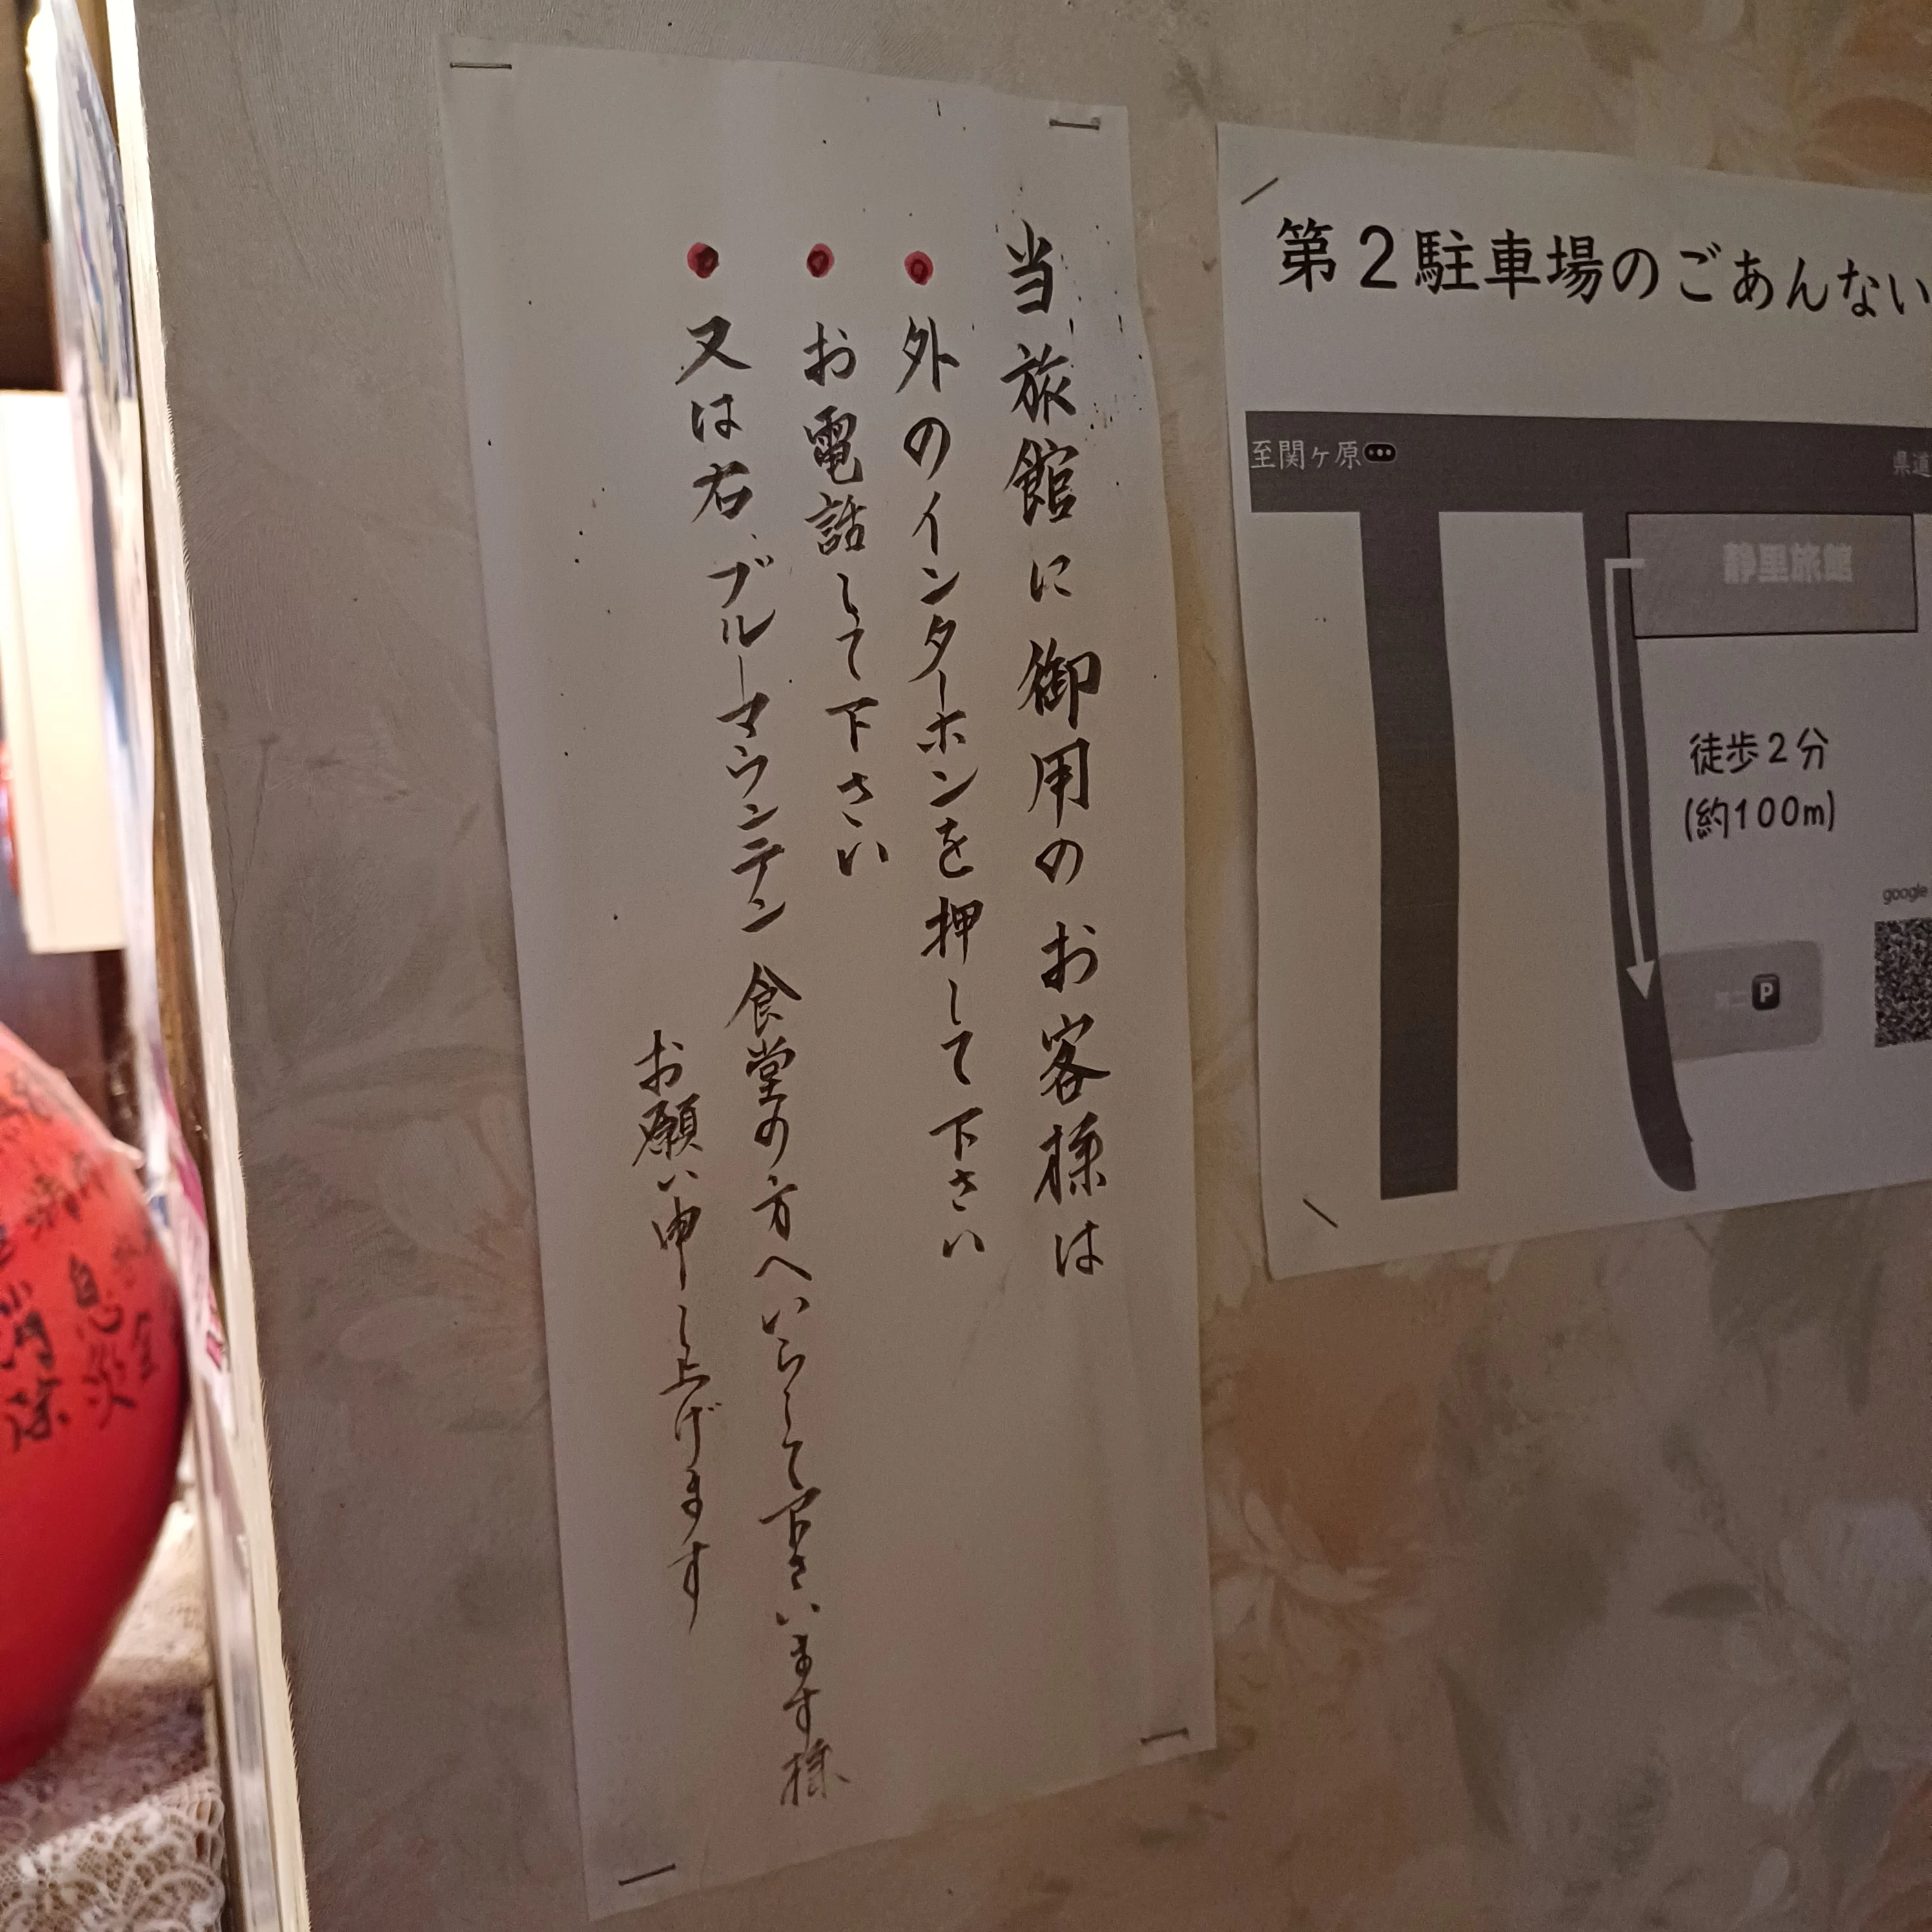 当旅館に御用のお客様は
● 外のインターホンを押して下さい
● お電話して下さい
● 又は右、ブルーマウンテン食堂の方へいらして下さいます様
お願い申し上げます
第2駐車場のごあんない
至関ヶ原
県道
静里旅館
徒歩2分
(約100m)
google
P
息災
消除